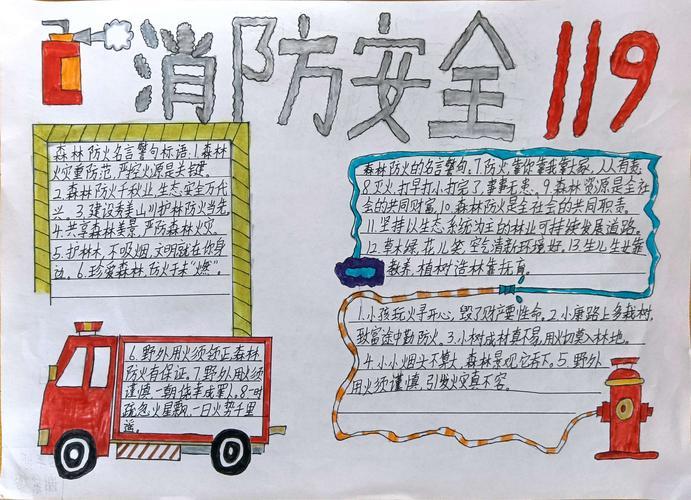 消防安全 119
森林防火名言警句标语:1.森林
火灾重防范,严控火源是关键.
2.森林防火千秋业,生态安全万代
兴.3.建设秀美山川护林防火当先.
4.共享森林美景,严防森林火灾.
5.护林木,不吸烟,文明就在你身
边.6.珍爱森林,防火于未“燃”.
6.野外用火须领证,森林
防火有保证.7.野外用火须
谨慎,一朝 罪人.8.一时
疏忽火星飘,一日火势千里
遥.
森林防火的名言警句:7.防火,靠你靠我靠大家,人人有责.
8.灭火,打早打小打完了,事事无患.9.森林资源是全社
会的共同财富.10.森林防火是全社会的共同职责.
11.坚持以生态系统为主的林业可持续发展道路.
12.草木绿,花儿笑,空气清新环境好.13.生儿生女靠
教养,植树造林靠抚育.
1.小孩玩火寻开心,毁了财产要性命.2.小康路上多栽树,
致富途中勤防火.3.小树成材真不易,用火切莫入林地.
4.小小烟头不算大,森林景观它吞下.5.野外
用火须谨慎,引发火灾真不容.